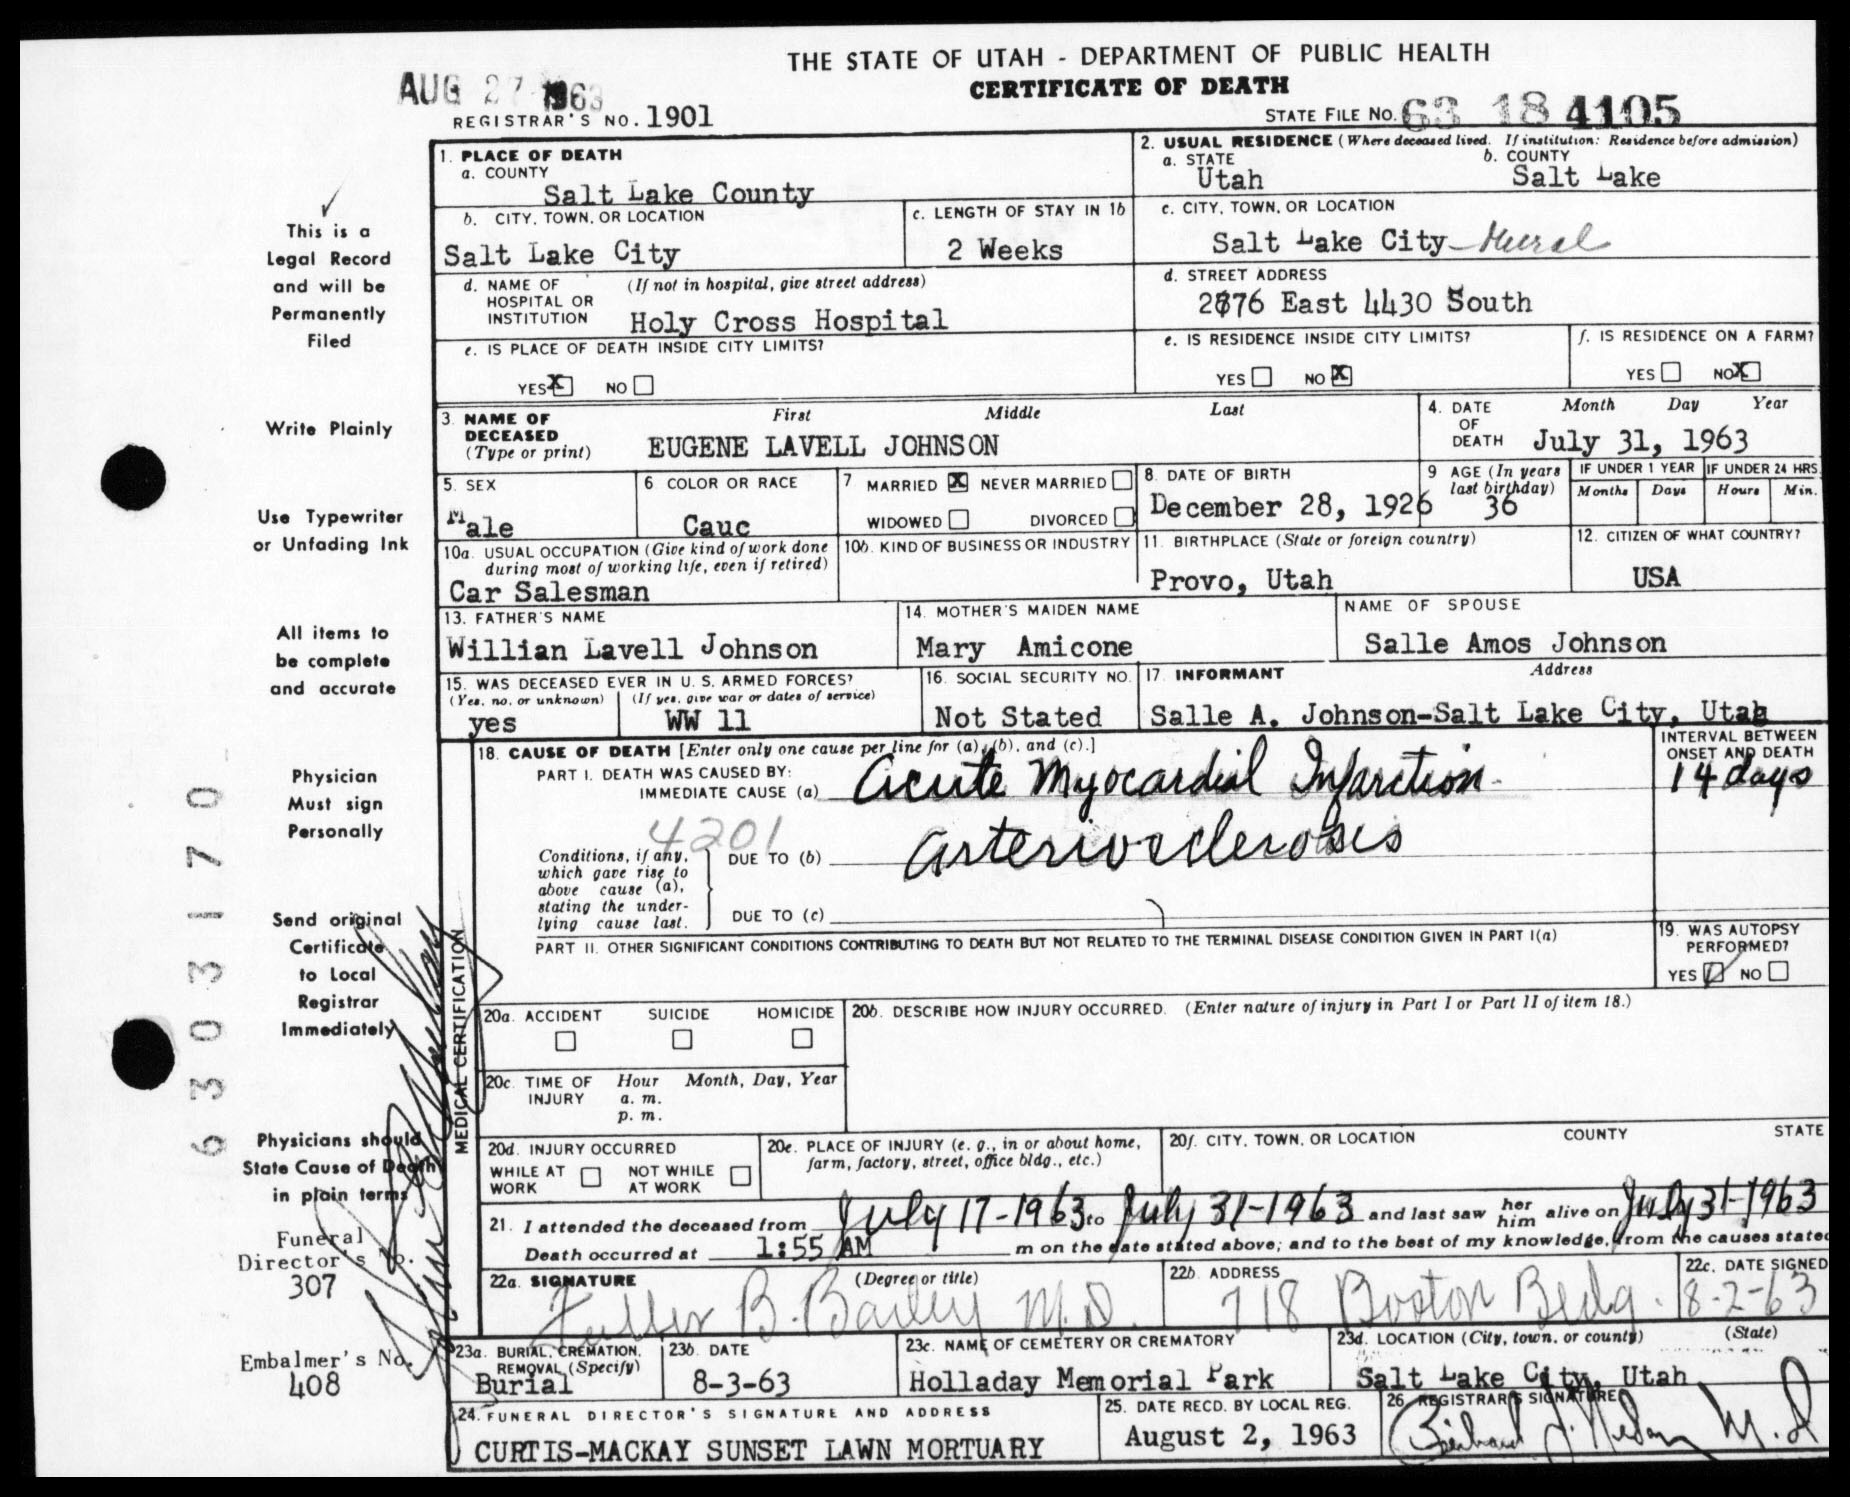 THE STATE OF UTAH - DEPARTMENT OF PUBLIC HEALTH
CERTIFICATE OF DEATH
AUG 27 1963
REGISTRAR'S NO. 1901
STATE FILE NO. 63 18 4105
1. PLACE OF DEATH
a. COUNTY
Salt Lake County
2. USUAL RESIDENCE (Where deceased lived. If institution: Residence before admission)
a. STATE b. COUNTY
Utah Salt Lake
b. CITY, TOWN, OR LOCATION
Salt Lake City
c. LENGTH OF STAY IN 1b
2 Weeks
c. CITY, TOWN, OR LOCATION
Salt Lake City - Rural
d. NAME OF HOSPITAL OR INSTITUTION (If not in hospital, give street address)
Holy Cross Hospital
d. STREET ADDRESS
2876 East 4430 South
e. IS PLACE OF DEATH INSIDE CITY LIMITS?
YES X NO
e. IS RESIDENCE INSIDE CITY LIMITS?
YES NO X
f. IS RESIDENCE ON A FARM?
YES NO X
3. NAME OF DECEASED (Type or print) First Middle Last
EUGENE LAVELL JOHNSON
4. DATE OF DEATH Month Day Year
July 31, 1963
5. SEX
Male
6 COLOR OR RACE
Cauc
7 MARRIED X NEVER MARRIED
WIDOWED DIVORCED
8. DATE OF BIRTH
December 28, 1926
9 AGE (In years last birthday)
36
IF UNDER 1 YEAR Months Days
IF UNDER 24 HRS. Hours Min.
10a. USUAL OCCUPATION (Give kind of work done during most of working life, even if retired)
Car Salesman
10b. KIND OF BUSINESS OR INDUSTRY
11. BIRTHPLACE (State or foreign country)
Provo, Utah
12. CITIZEN OF WHAT COUNTRY?
USA
13. FATHER'S NAME
Willian Lavell Johnson
14. MOTHER'S MAIDEN NAME
Mary Amicone
NAME OF SPOUSE
Salle Amos Johnson
15. WAS DECEASED EVER IN U. S. ARMED FORCES?
(Yes, no, or unknown) (If yes, give war or dates of service)
yes WW 11
16. SOCIAL SECURITY NO.
Not Stated
17. INFORMANT Address
Salle A. Johnson-Salt Lake City, Utah
MEDICAL CERTIFICATION
18. CAUSE OF DEATH [Enter only one cause per line for (a), (b), and (c).]
PART I. DEATH WAS CAUSED BY:
IMMEDIATE CAUSE (a) Acute Myocardial Infarction
INTERVAL BETWEEN ONSET AND DEATH
14 days
4201
Conditions, if any, which gave rise to above cause (a), stating the underlying cause last.
DUE TO (b) Arteriosclerosis
DUE TO (c)
PART II. OTHER SIGNIFICANT CONDITIONS CONTRIBUTING TO DEATH BUT NOT RELATED TO THE TERMINAL DISEASE CONDITION GIVEN IN PART I(a)
19. WAS AUTOPSY PERFORMED?
YES NO
20a. ACCIDENT SUICIDE HOMICIDE
20b. DESCRIBE HOW INJURY OCCURRED. (Enter nature of injury in Part I or Part II of item 18.)
20c. TIME OF INJURY Hour Month, Day, Year
a. m.
p. m.
20d. INJURY OCCURRED
WHILE AT WORK NOT WHILE AT WORK
20e. PLACE OF INJURY (e. g., in or about home, farm, factory, street, office bldg., etc.)
20f. CITY, TOWN, OR LOCATION COUNTY STATE
21. I attended the deceased from July 17-1963 to July 31-1963 and last saw her him alive on July 31-1963
Death occurred at 1:55 AM m on the date stated above; and to the best of my knowledge, from the causes stated
22a. SIGNATURE (Degree or title)
Fuller B. Bailey M.D.
22b. ADDRESS
718 Boston Bldg.
22c. DATE SIGNED
8-2-63
23a. BURIAL, CREMATION, REMOVAL (Specify)
Burial
23b. DATE
8-3-63
23c. NAME OF CEMETERY OR CREMATORY
Holladay Memorial Park
23d. LOCATION (City, town, or county) (State)
Salt Lake City, Utah
24. FUNERAL DIRECTOR'S SIGNATURE AND ADDRESS
CURTIS-MACKAY SUNSET LAWN MORTUARY
25. DATE RECD. BY LOCAL REG.
August 2, 1963
26. REGISTRAR'S SIGNATURE
M.D.
This is a
Legal Record
and will be
Permanently
Filed
Write Plainly
Use Typewriter
or Unfading Ink
All items to
be complete
and accurate
Physician
Must sign
Personally
Send original
Certificate
to Local
Registrar
Immediately
Physicians should
State Cause of Death
in plain terms
Funeral
Director's No.
307
Embalmer's No.
408
6303170